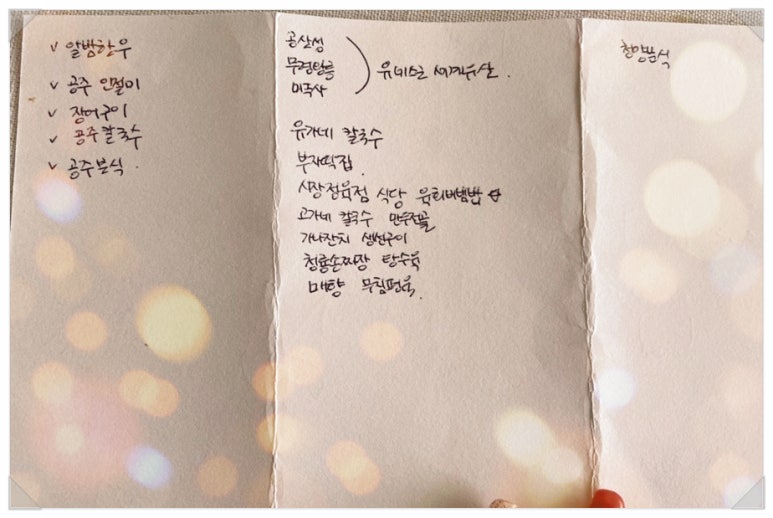 ✓ 알밤한우
✓ 공주 인절미
✓ 장어구이
✓ 공주칼국수
✓ 공주분식.
공산성
무령왕릉
마곡사
유네스코 세계유산.
유가네 칼국수
부자떡집.
시장정육점 식당 육회비빔밥
고가네 칼국수 만두전골
가나잔치 생선구이
청룡손짜장 탕수육
매향 무침편육.
청양분식